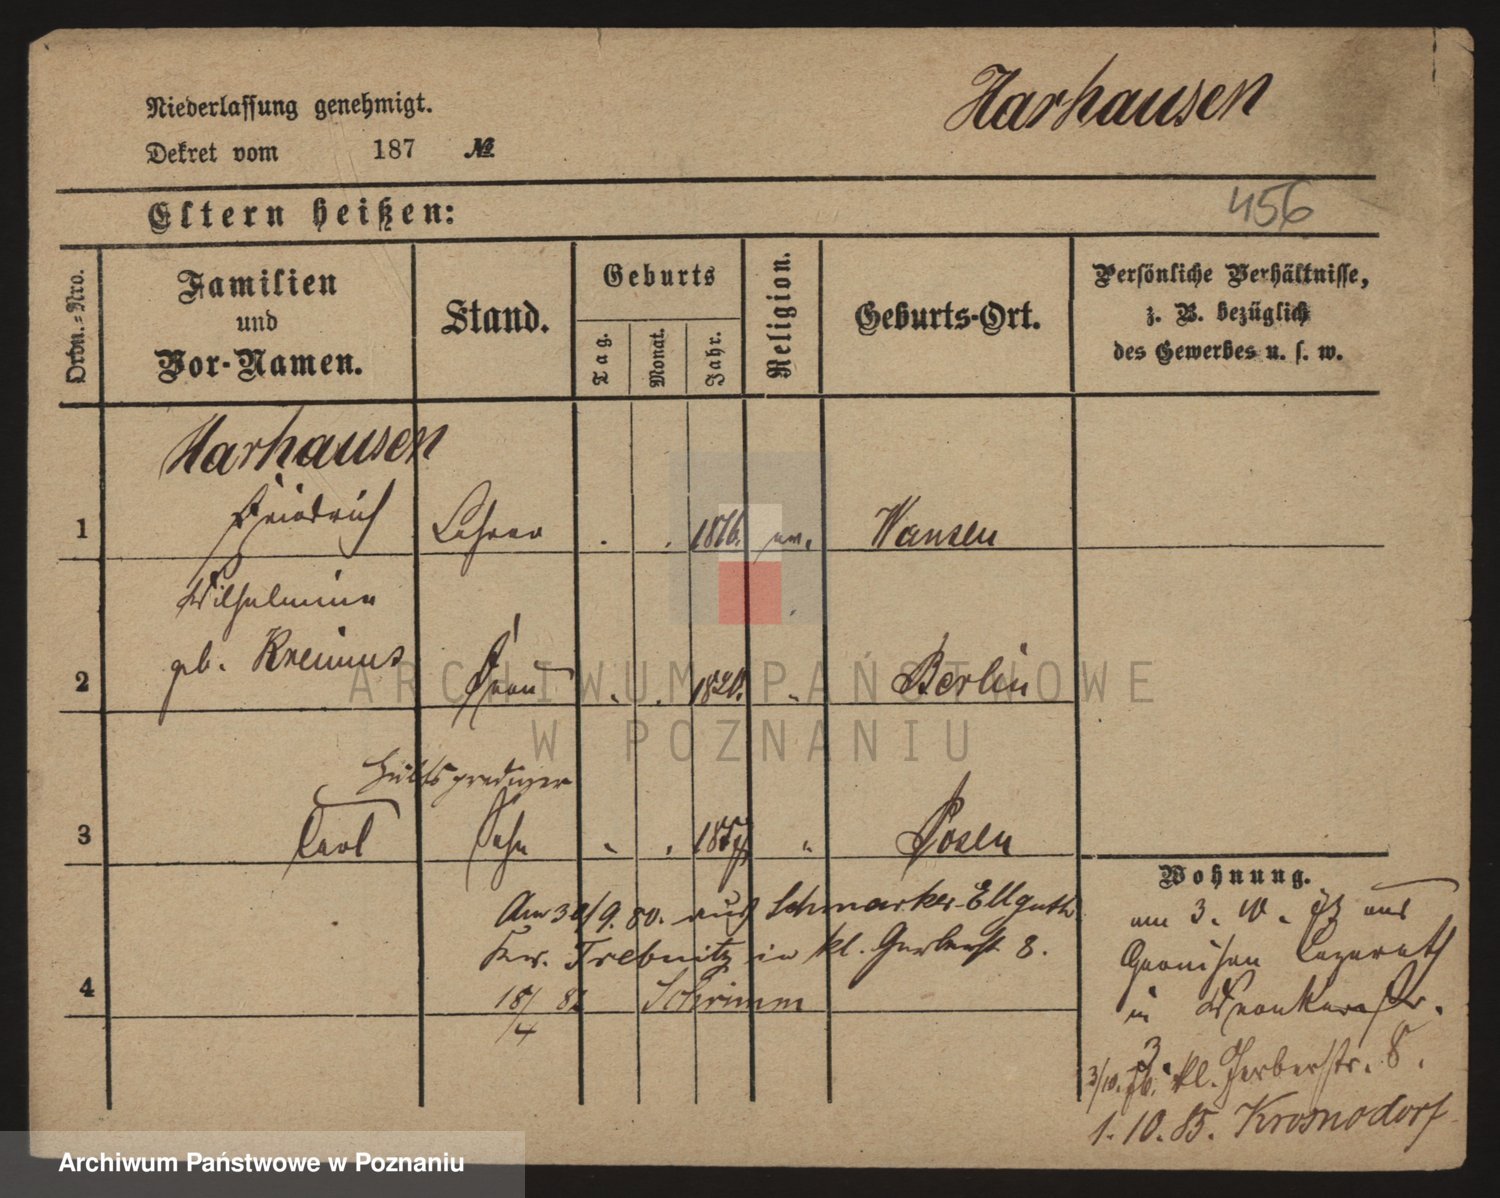 Harhausen
Niederlassung genehmigt.
Dekret vom 187 №
Eltern heißen:
456
Ordn.-Nro.
Familien
und
Vor-Namen.
Stand.
Geburts
Tag.
Monat.
Jahr.
Religion.
Geburts-Ort.
Persönliche Verhältnisse,
z. B. bezüglich
des Gewerbes u. s. w.
Harhausen
1 Friedrich Lehrer 1816. ev. Wansen
Wilhelmine
geb.
2 Frau 1820. " Berlin
Hülfsprediger
3 Carl Sohn " " Posen
Wohnung.
Am 30/9. 80. aus Schmarker-Ellguth
Krs. Trebnitz in kl. Gerberstr. 8.
4 18/4 82 Schrimm
am 3. 10. aus
Garnison Lazareth
in
3/10. kl. Gerberstr. 8.
1. 10. 85. Krosnodorf
ARCHIWUM PAŃSTWOWE
W POZNANIU
Archiwum Państwowe w Poznaniu